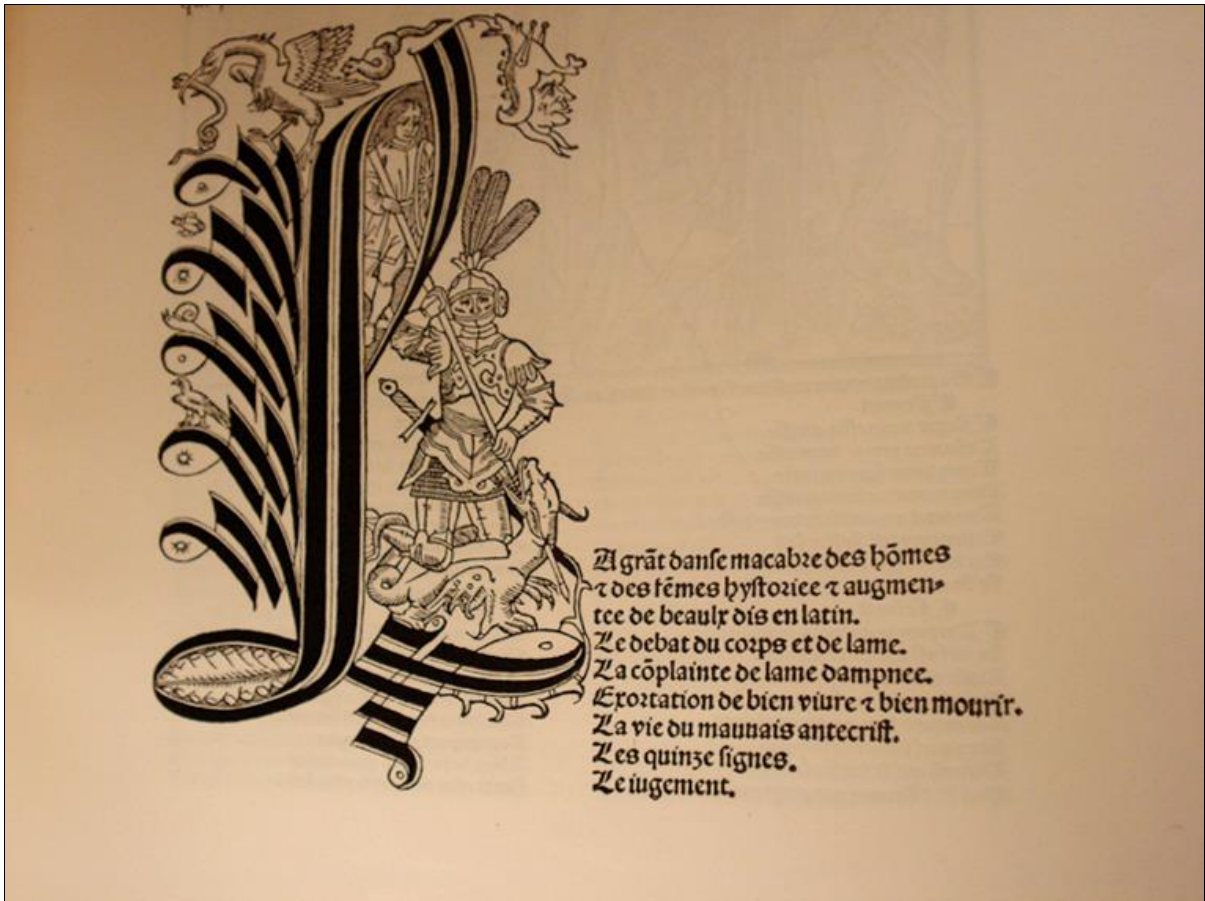 L
A grãt danſe macabre des hõmes
⁊ des fẽmes hyſtoriee ⁊ augmen-
tee de beaulx dis en latin.
Le debat du corps et de lame.
La cõplainte de lame dampnee.
Exortation de bien viure ⁊ bien mourir.
La vie du mauuais antecriſt.
Les quinze ſignes.
Le iugement.